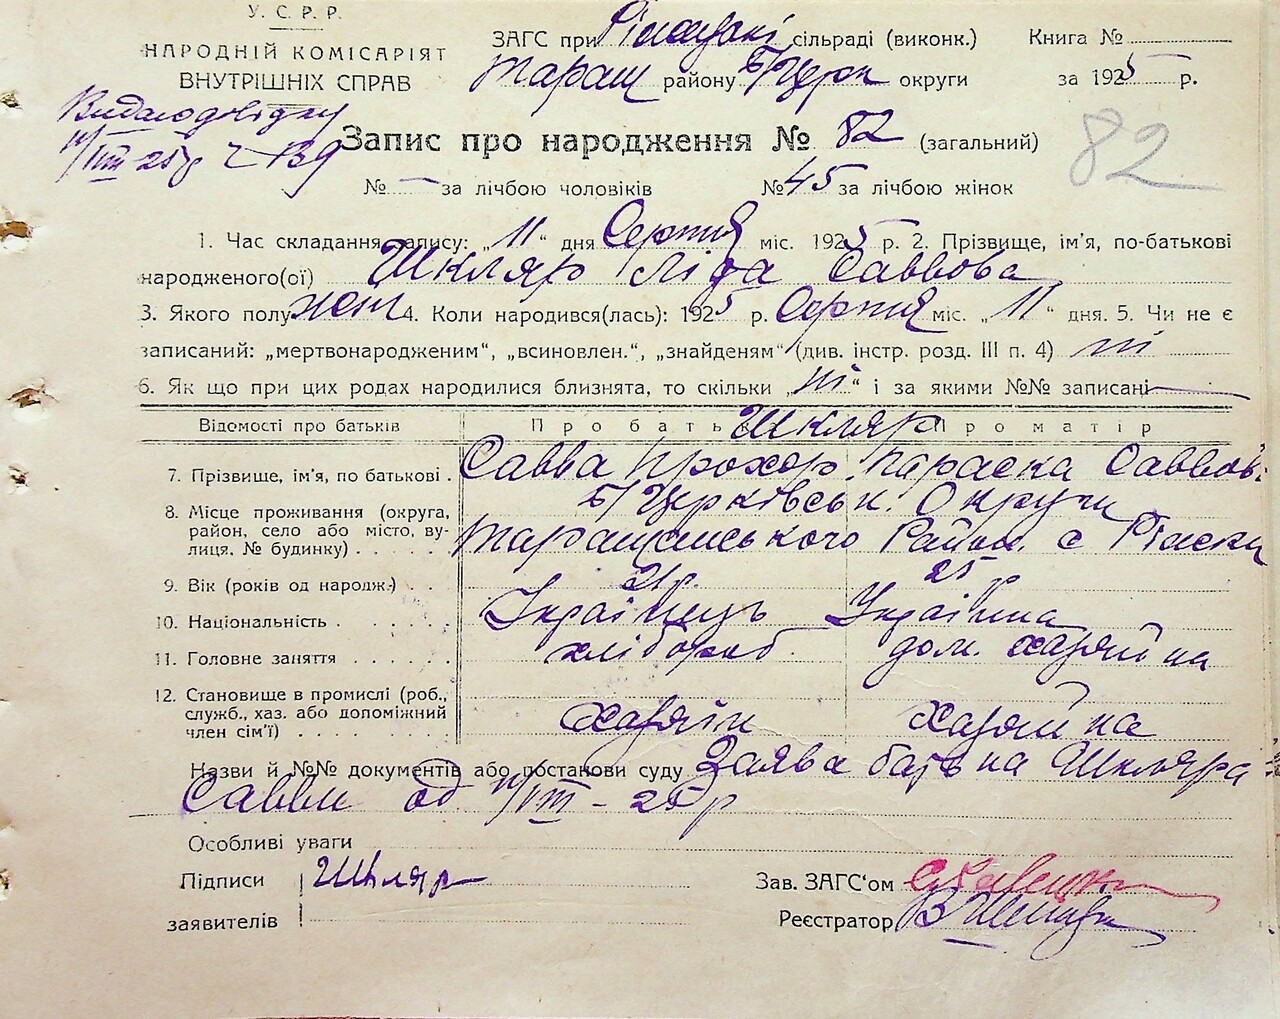 У. С. Р. Р.
НАРОДНІЙ КОМІСАРІЯТ
ВНУТРІШНІХ СПРАВ
ЗАГС при сільраді (виконк.) Книга №
Таращ району Б/Церк округи за 1925 р.
Видано довідку
11/VIII-25р Ч 139
Запис про народження № 82 (загальний)
82
№ — за лічбою чоловіків № 45 за лічбою жінок
1. Час складання запису: „11“ дня Серпня міс. 1925 р. 2. Прізвище, ім'я, по-батькові
народженого(ої) Шкляр Ліда Саввова
3. Якого полу жен 4. Коли народився(лась): 1925 р. Серпня міс. „11“ дня. 5. Чи не є
записаний: „мертвонародженим“, „всиновлен.“, „знайденям“ (див. інстр. розд. III п. 4) ні
6. Як що при цих родах народилися близнята, то скільки „ні“ і за якими №№ записані —
Відомості про батьків Про батька Про матір
Шкляр
7. Прізвище, ім'я, по батькові . Савва Прохор. Параска Саввов.
8. Місце проживання (округа, район, село або місто, вулиця, № будинку) . . . . . Б/Церківськ. Округи
Таращанського Район. с Ріжки
9. Вік (років од народж.) . . 21 р. 25 р
10. Національність . . . . . . Українець Українка
11. Головне заняття . . . . . . хлібороб. дом. хазяйка
12. Становище в промислі (роб., служб., хаз. або допоміжний член сім'ї) . . . . . . . хазяїн хазяйка
Назви й №№ документів або постанови суду Заява батька Шкляра
Савви од 11/VIII-25р
Особливі уваги
Підписи Шкляр
заявителів
Зав. ЗАГС'ом
Реєстратор